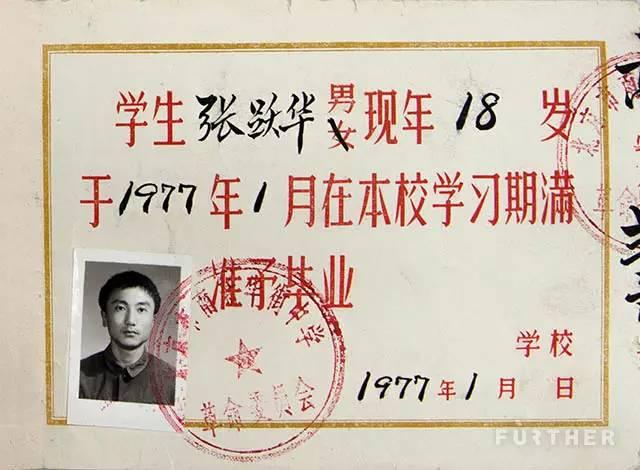 学生张跃华男女现年18岁
于1977年1月在本校学习期满
准予毕业
学校
1977年1月 日
革命委员会
FURTHER